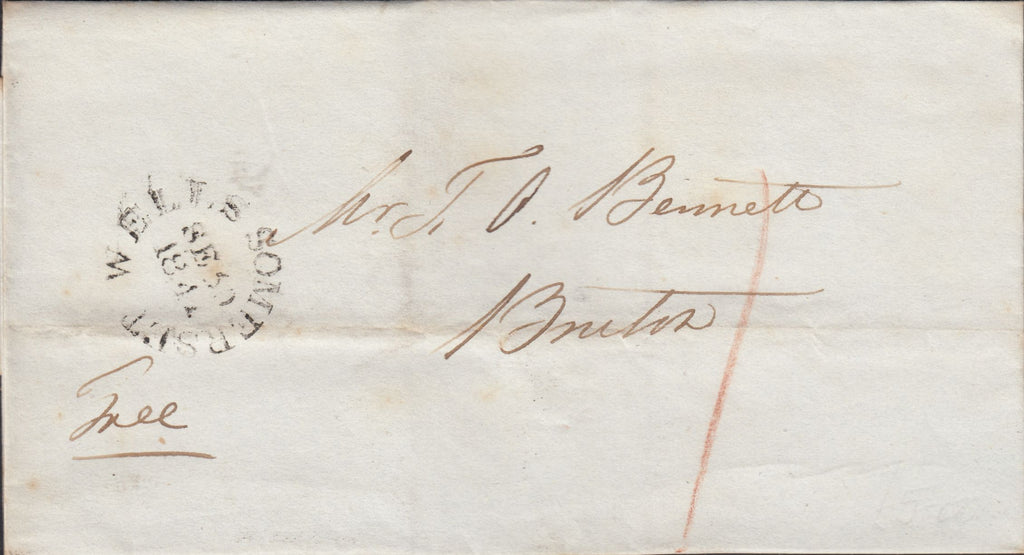 WELLS SOMERSET
SE 30
Mr. T. O. Bennett
Bruton
Free